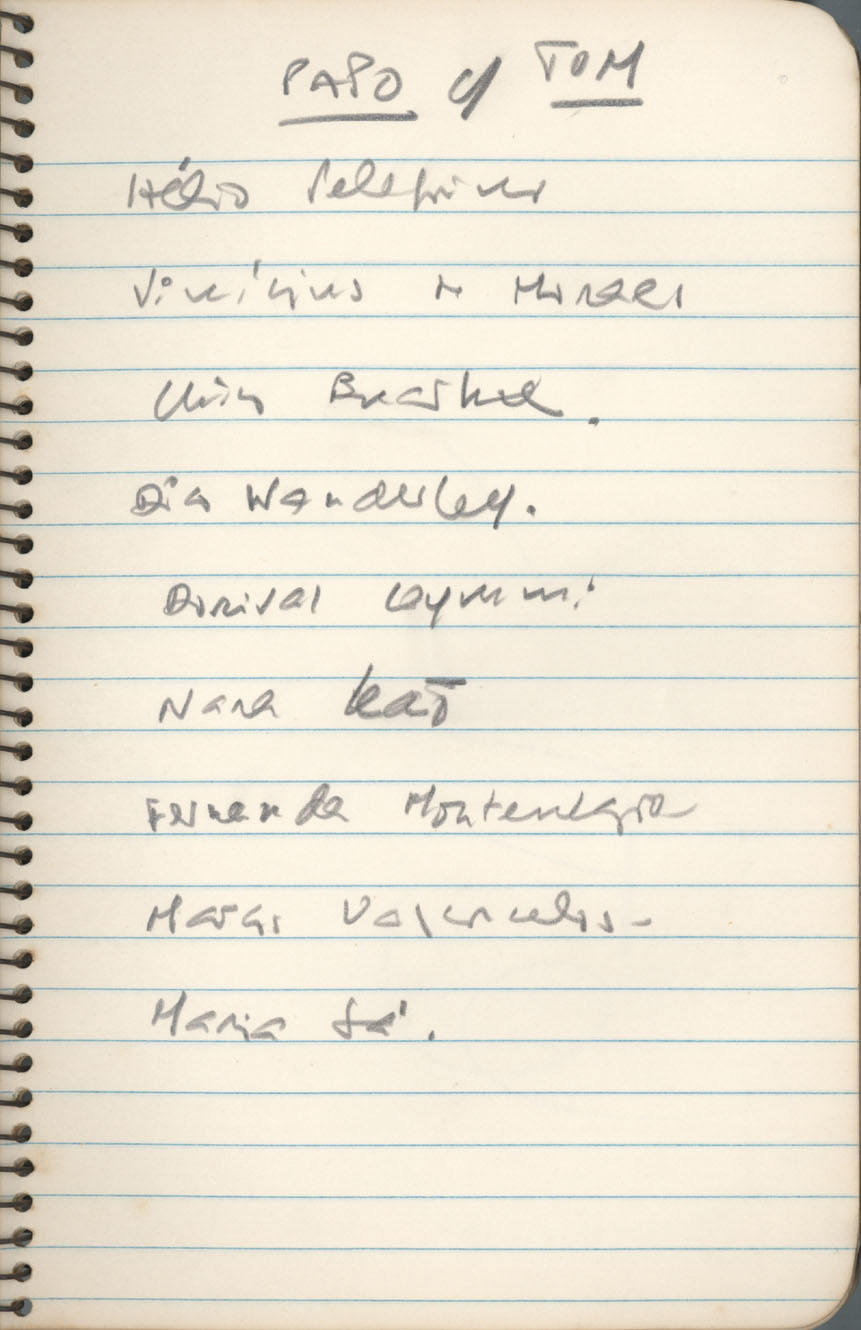 PAPO c/ TOM
Hélio Pelegrino
Vinícius de Moraes
Chico Buarque.
Wanderley.
Dorival Caymmi
Nara Leão
Fernanda Montenegro
Vasconcelos -
Maria Sá.